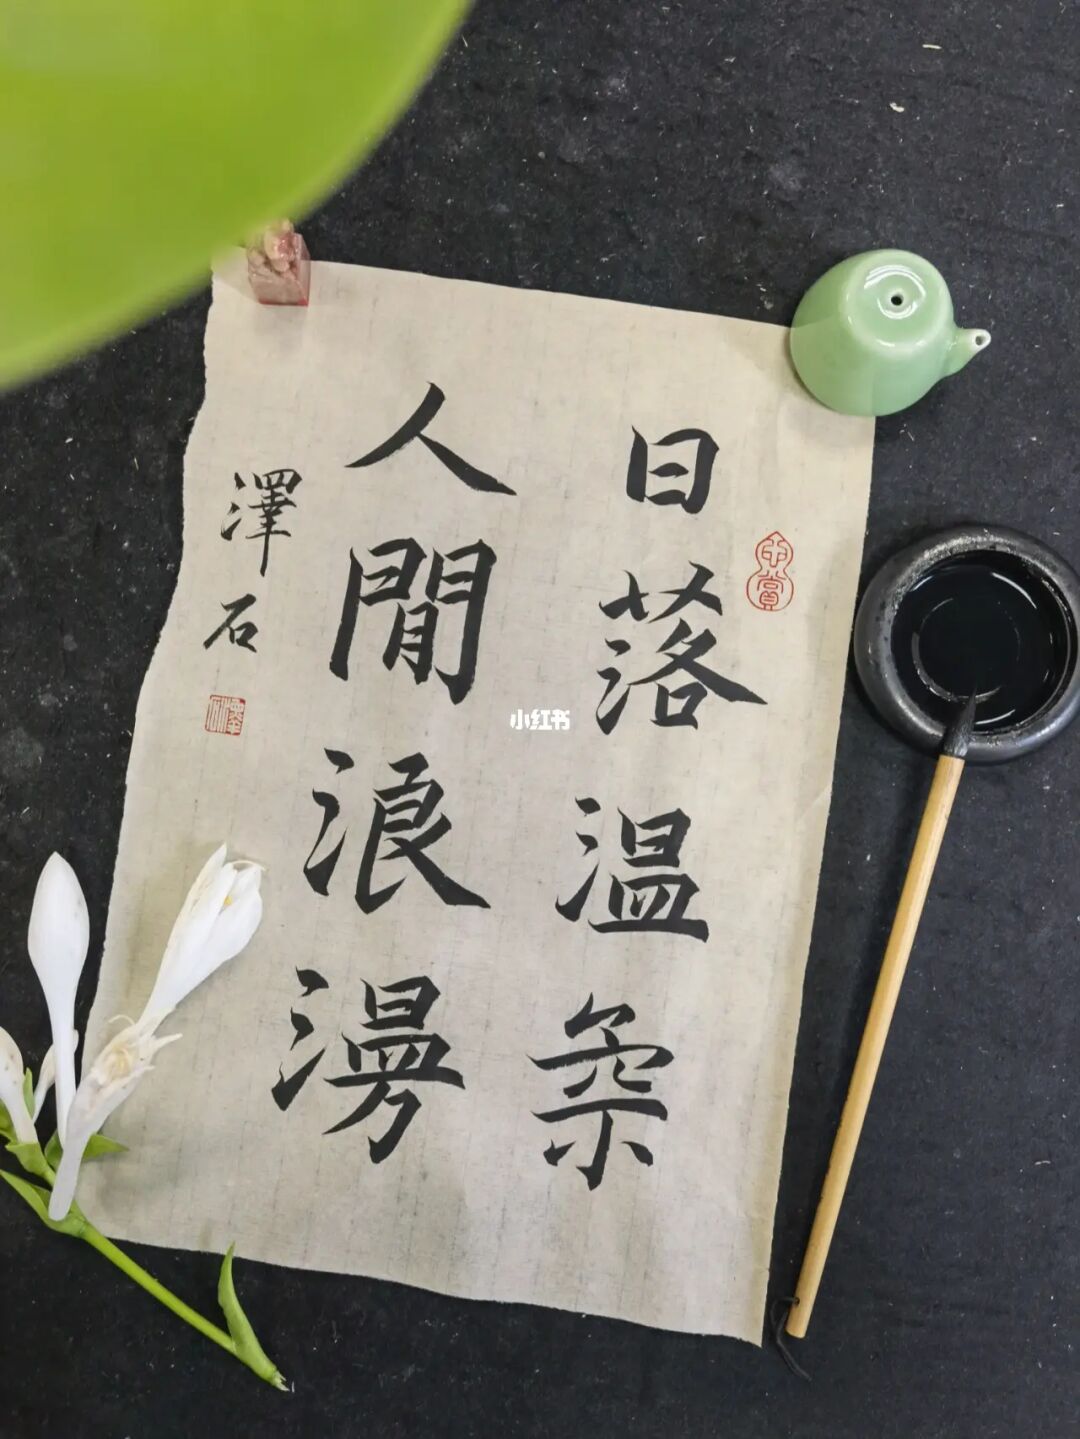 日落温柔
人閒浪漫
澤石
小红书